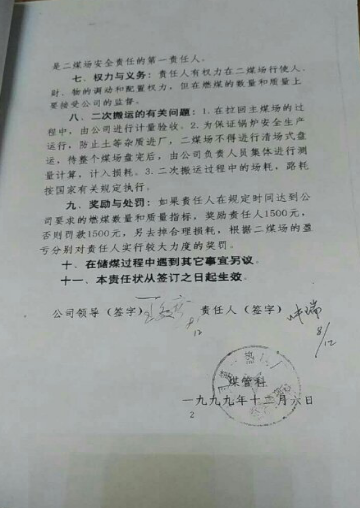 是二煤场安全责任的第一责任人。
七、权力与义务：责任人有权力在二煤场行使人、
财、物的调动和配置权力。但在燃煤的数量和质量上
要接受公司的监督。
八、二次搬运的有关问题：1.在拉回主煤场的过
程中，由公司进行计量验收。2.为保证锅炉安全生产
运行，防止土等杂质进厂，二煤场不得进行清场式盘
运，待整个煤场盘完后，由公司负责人员集体进行测
量计算，计入损耗。3.二次搬运过程中的场耗，路耗
按国家有关规定执行。
九、奖励与处罚：如果责任人在规定时间达到公
司要求的燃煤数量和质量指标，奖励责任人1500元，
否则罚款1500元，另去掉合理损耗，根据二煤场的盈
亏分别对责任人实行较大力度的奖罚。
十、在储煤过程中遇到其它事宜另议。
十一、本责任状从签订之日起生效。
公司领导（签字） 责任人（签字）
8/12
8/12
煤管科
一九九九年十二月六日
2